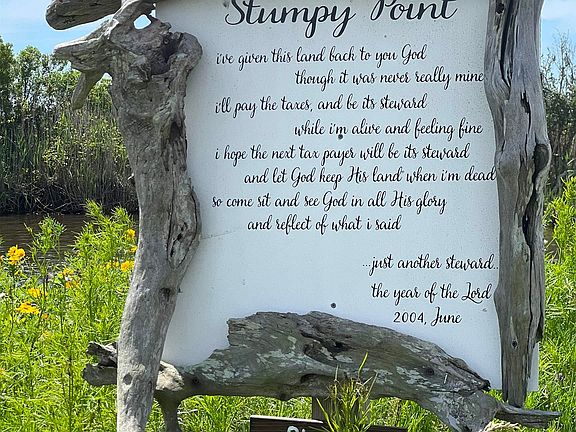 Stumpy Point
i've given this land back to you God
though it was never really mine
i'll pay the taxes, and be its steward
while i'm alive and feeling fine
i hope the next tax payer will be its steward
and let God keep His land when i'm dead
so come sit and see God in all His glory
and reflect of what i said
...just another steward...
the year of the Lord
2004, June